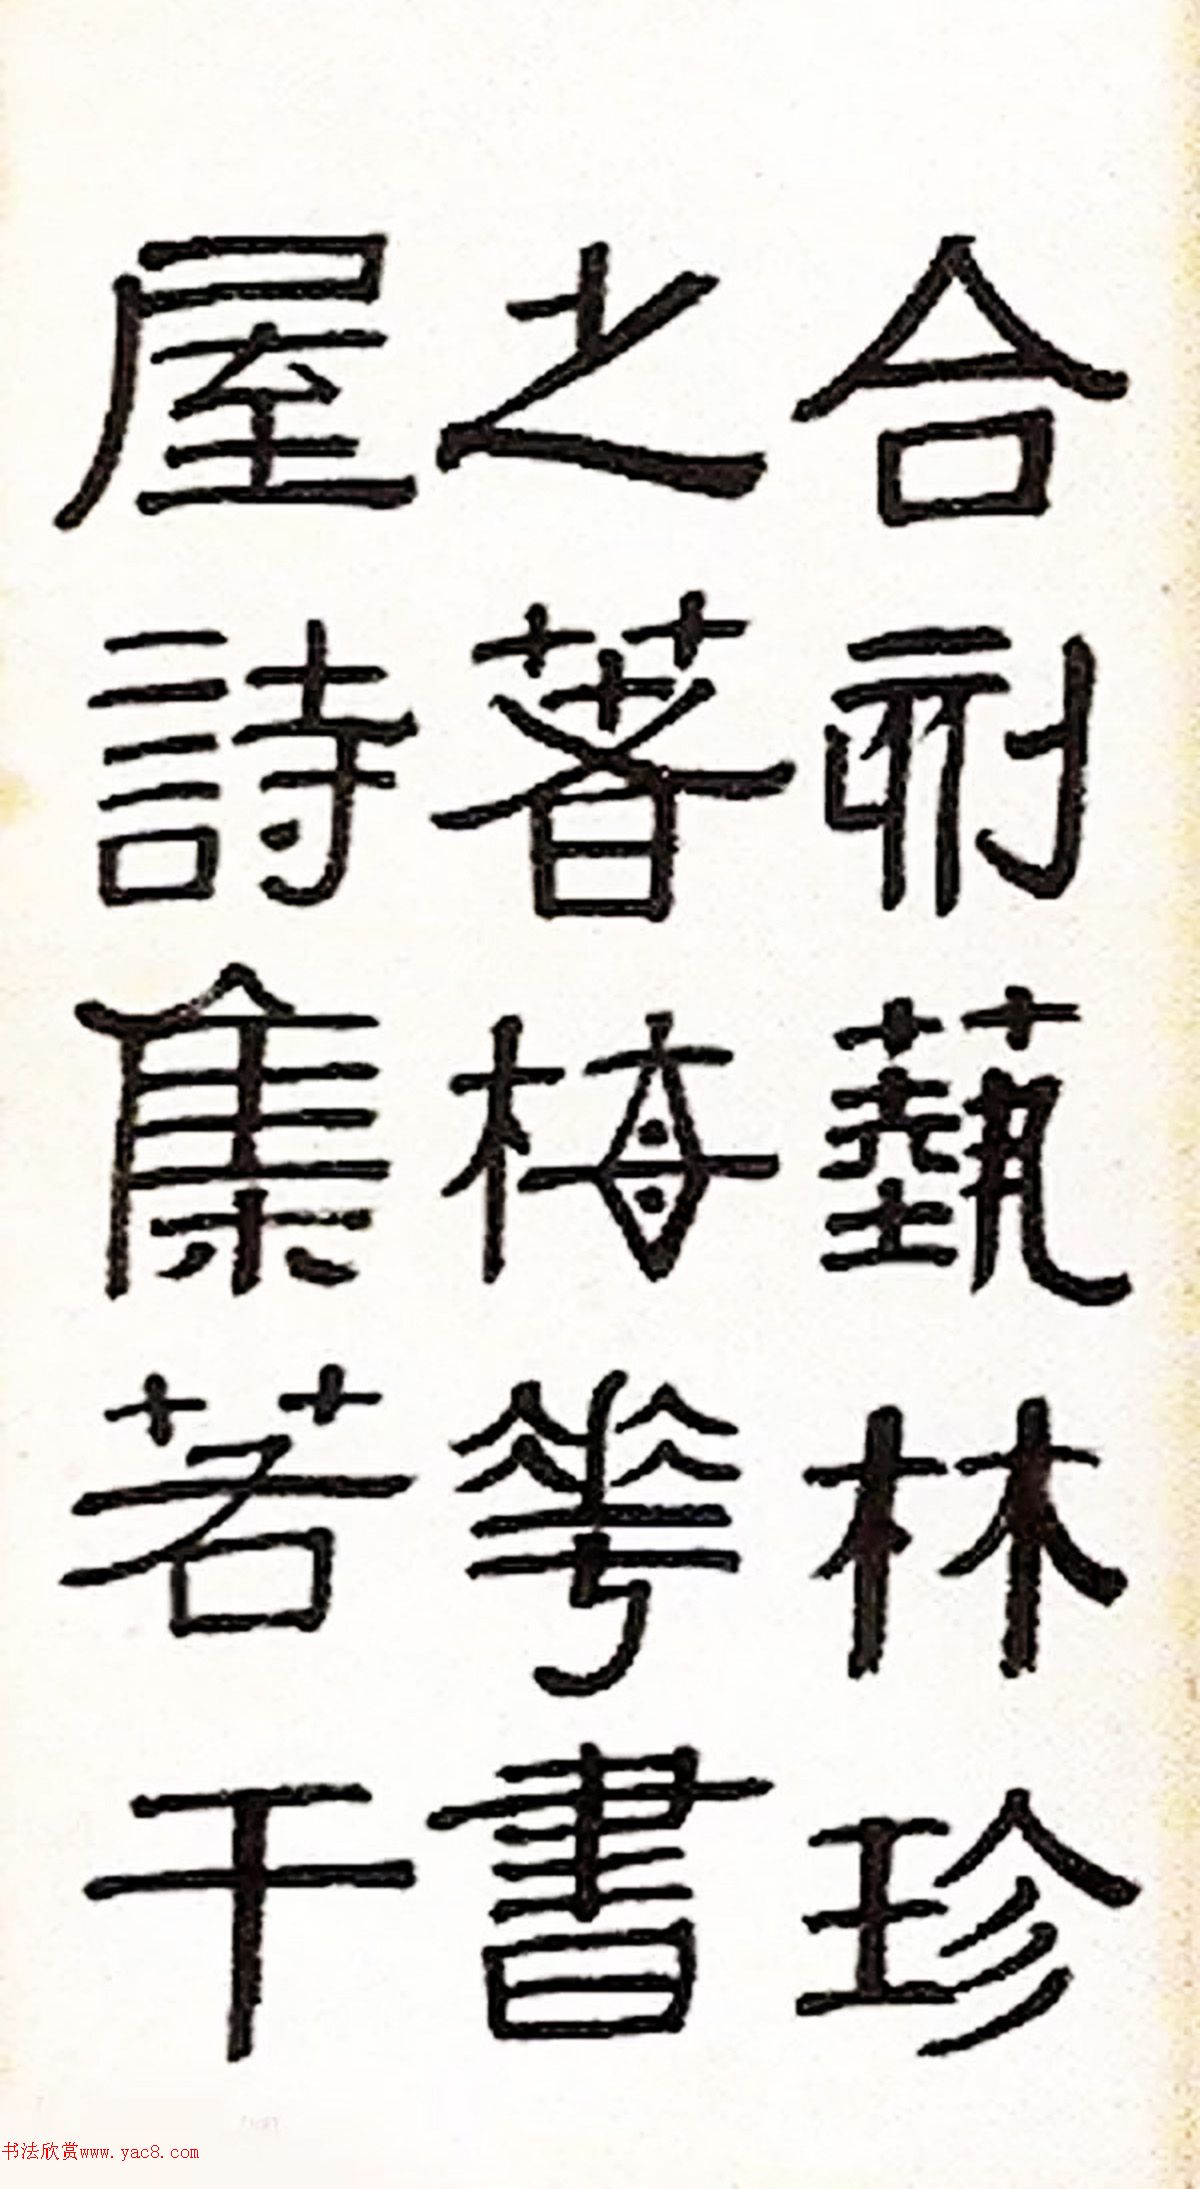 合刻藝林珍
之著梅華書
屋詩集若干
书法欣赏www.yac8.com